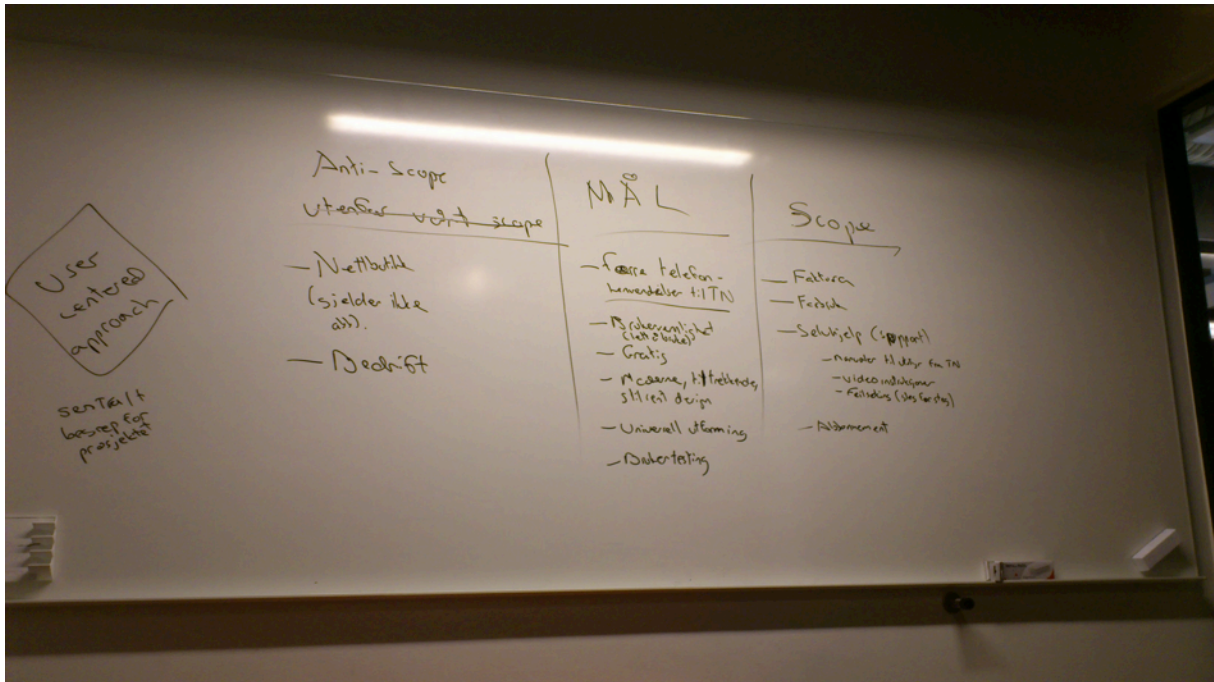 User
centered
approach
sentralt
begrep for
prosjektet
Anti-Scope
utenfor vårt scope
- Nettbutikk
(gjelder ikke
oss).
- Bedrift
MÅL
- færre telefon-
henvendelser til TN
- Brukervennlighet
(lett å bruke)
- Gratis
- Moderne, tiltrekkende,
stilrent design
- Universell utforming
- Brukertesting
Scope
- Faktura
- Selvhjelp (support)
- manualer til utstyr fra TN
- videoinstruksjoner
- Feilsøking (steg for steg)
- Abonnement